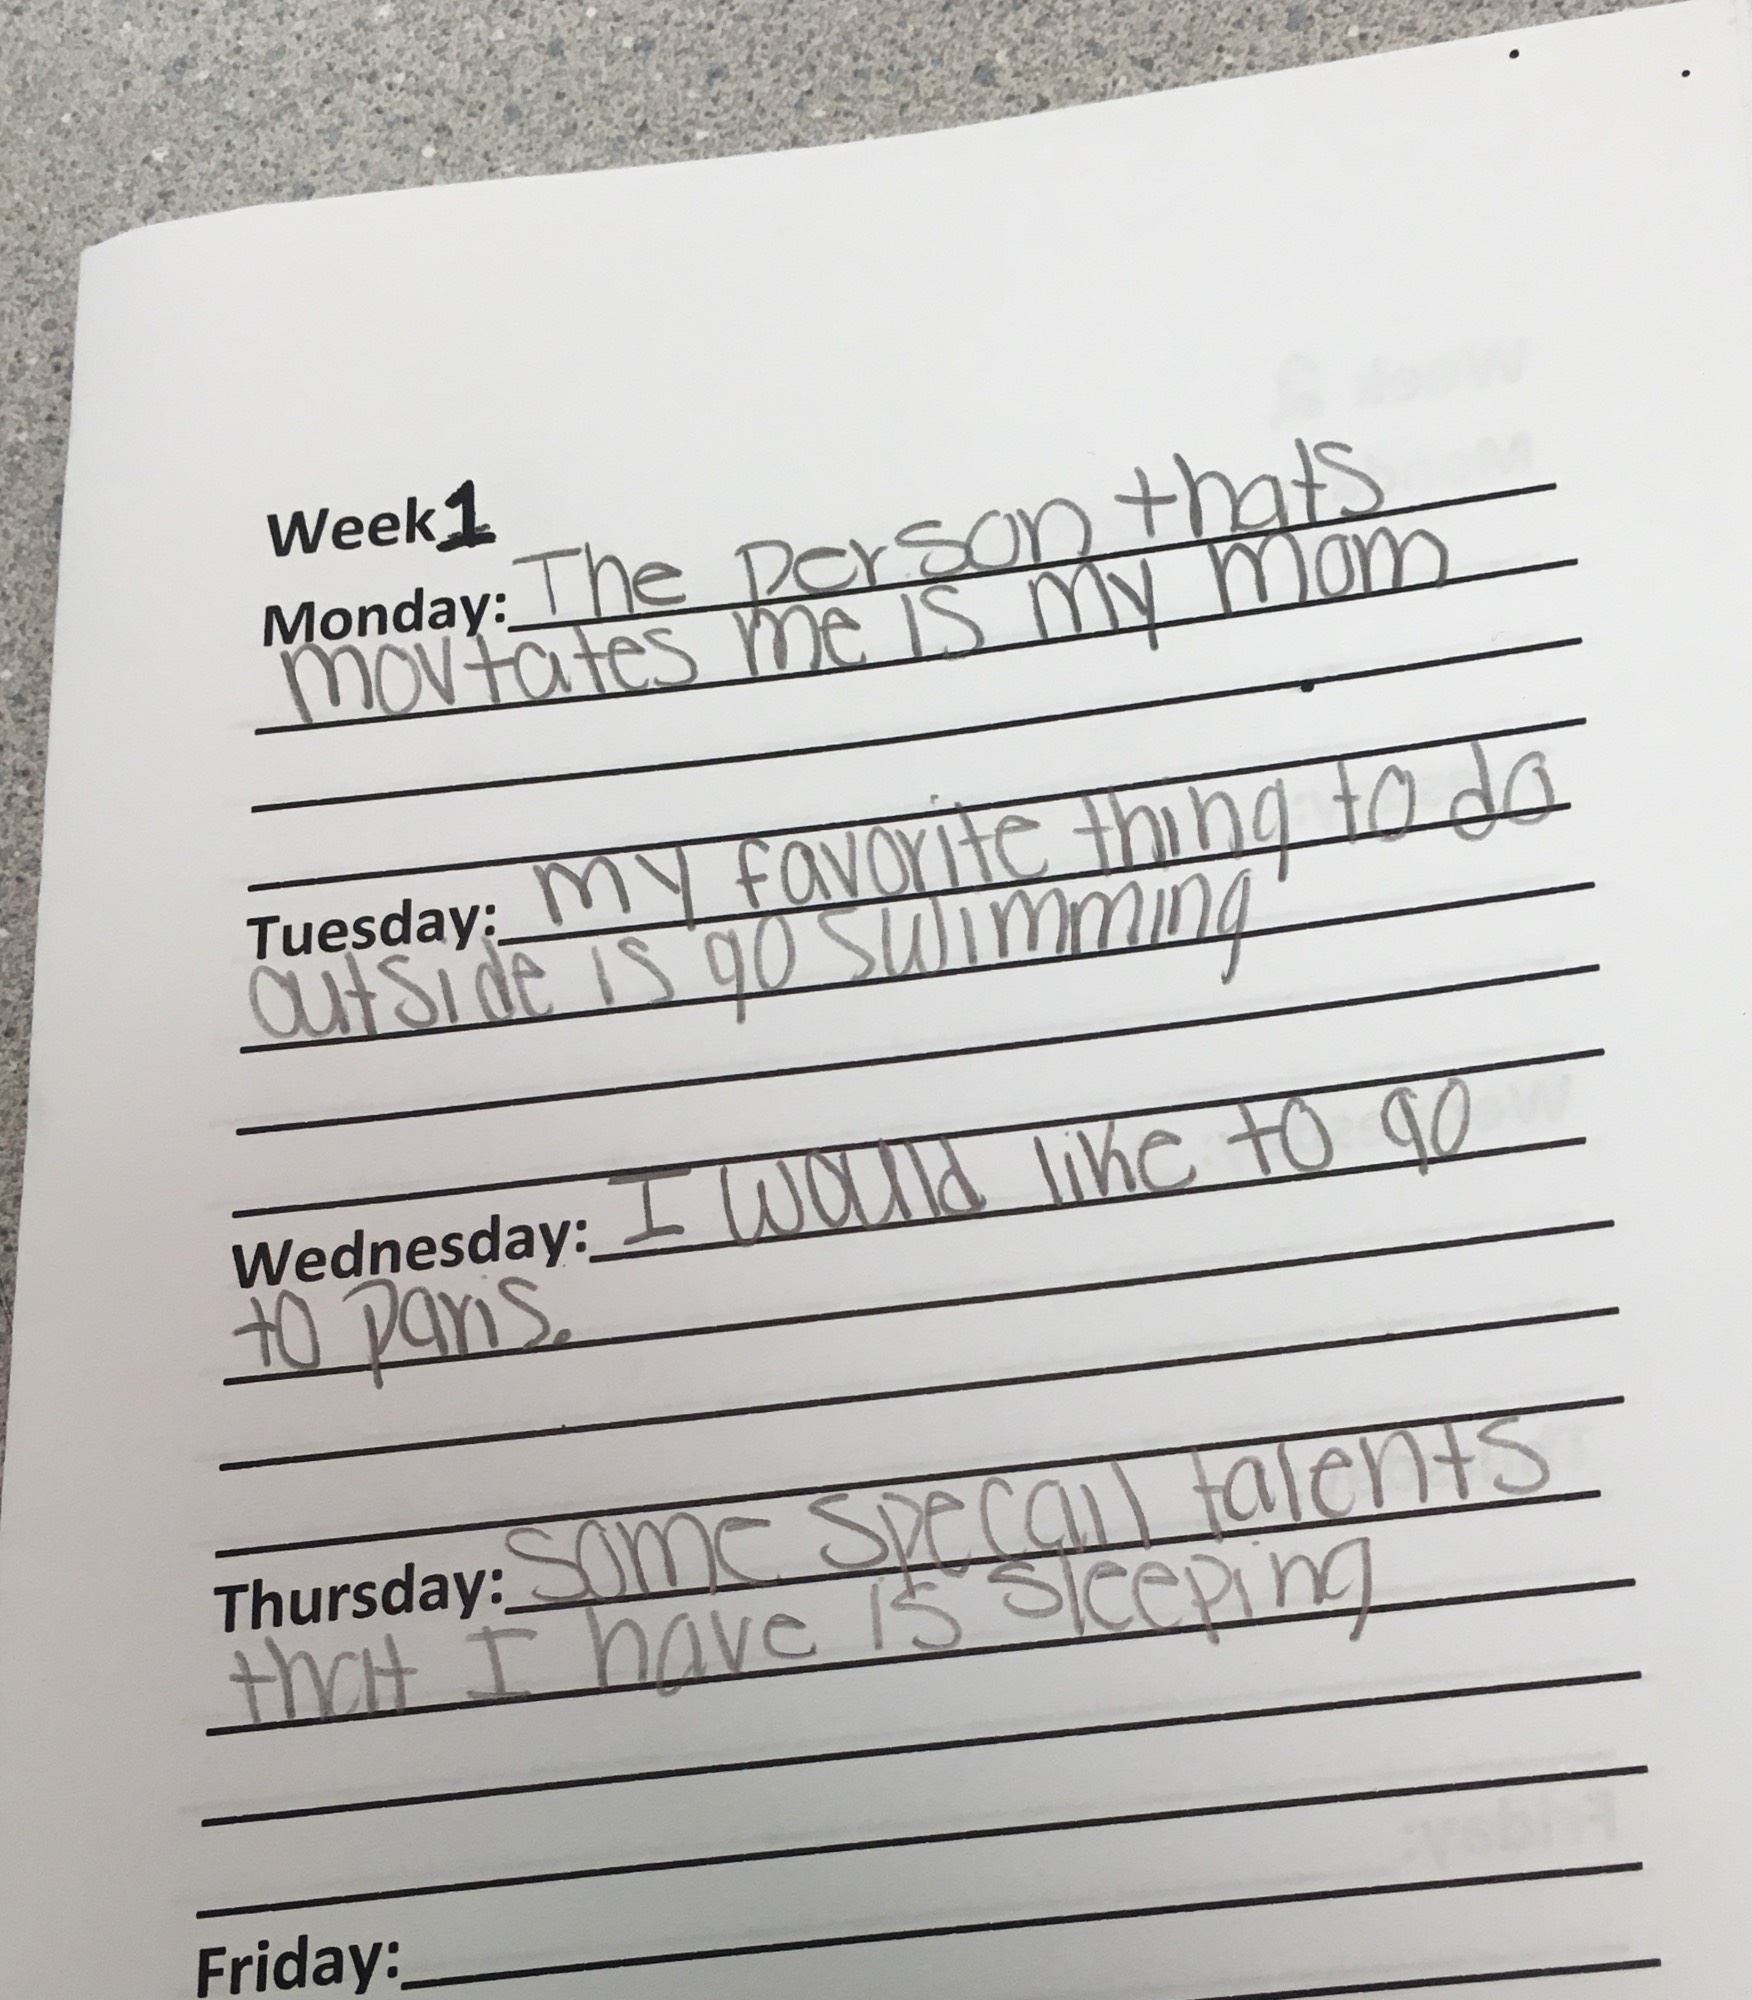 Week 1
Monday: The person thats
movtates me is my mom
Tuesday: my favorite thing to do
outside is go swimming
Wednesday: I would like to go
to paris.
Thursday: some specail talents
that I have is sleeping
Friday: